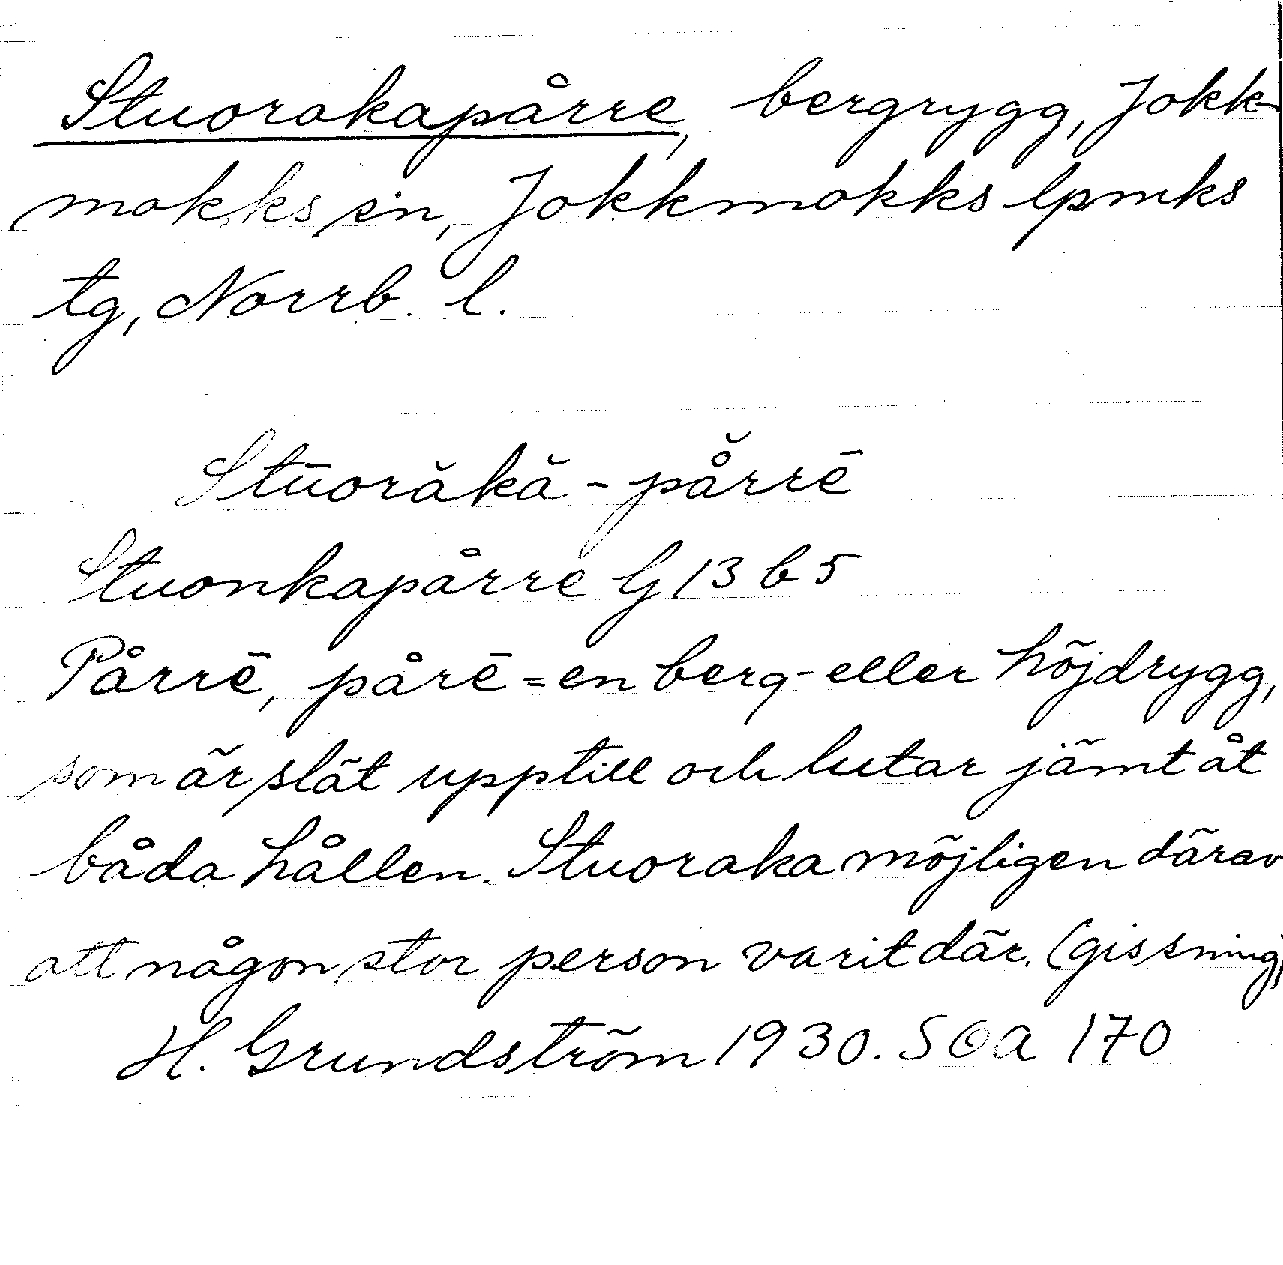 Stuorakapårre, bergrygg, Jokk-
mokks sn, Jokkmokks lpmks
tg, Norrb. l.
Stūorăkă-pårrē
Stuonkapårre G 13 b 5
Pårrē, pårē = en berg- eller höjdrygg,
som är slät upptill och lutar jämt åt
båda hållen. Stuoraka möjligen därav
att någon stor person varit där. (gissning)
H. Grundström 1930. SOA 170